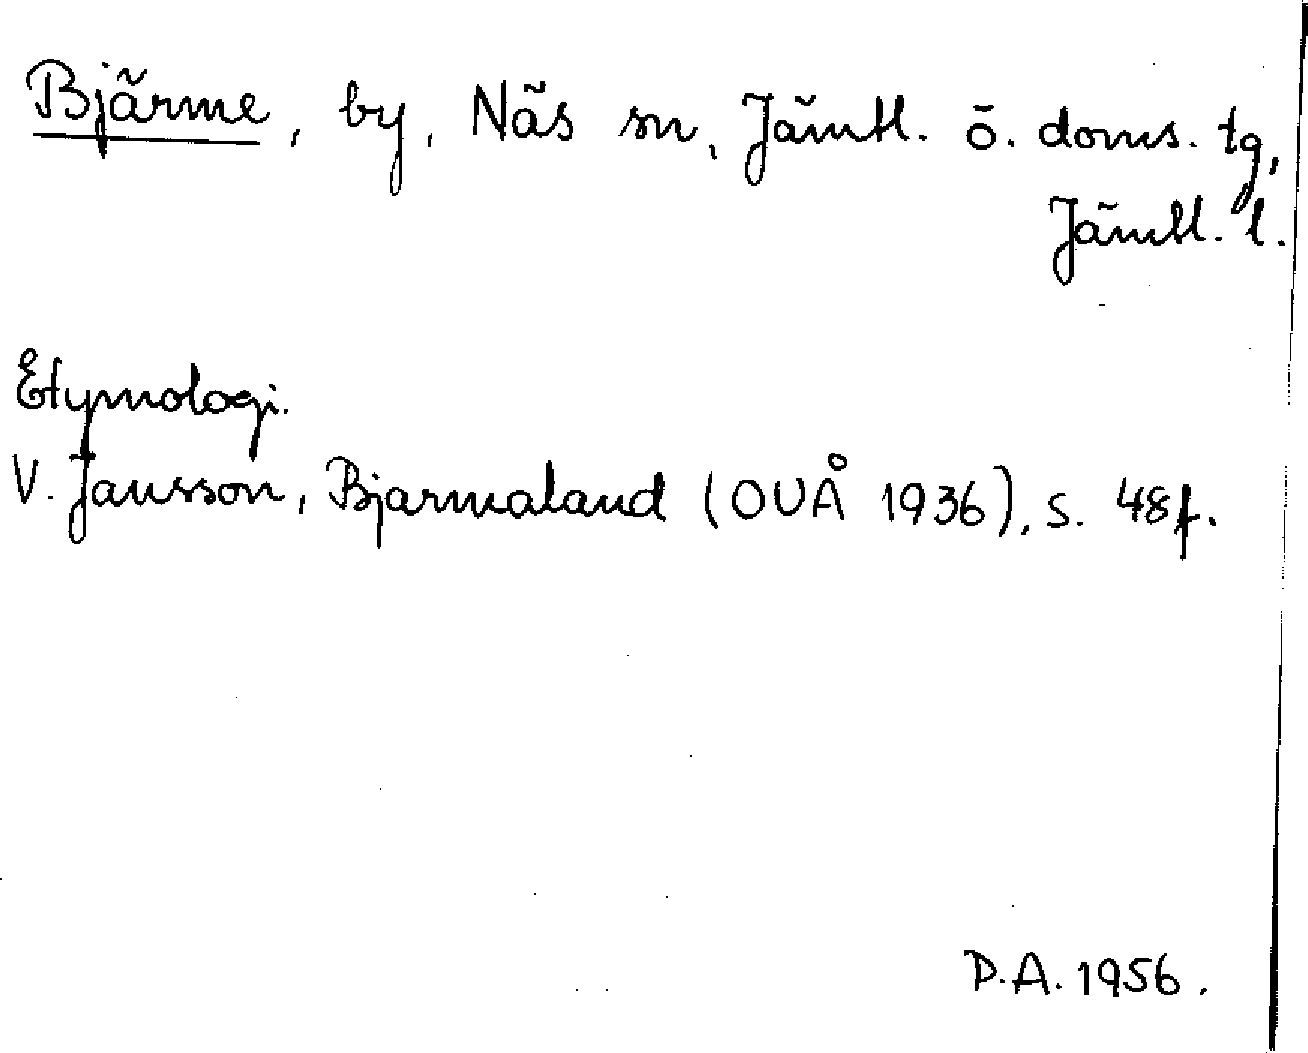 Bjärme, by, Näs sn, Jämtl. ö. doms. tg,
Jämtl. l.
Etymologi.
V. Jansson, Bjarmaland (OUÅ 1936), s. 48f.
D.A. 1956.